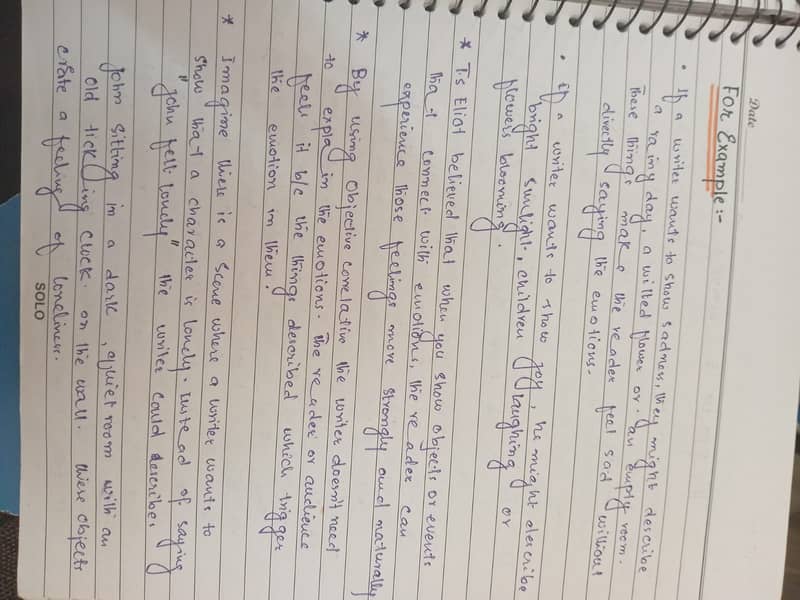 Date
For Example:-
• If a writer wants to show sadness, they might describe
a rainy day, a wilted flower or an empty room.
These things make the reader feel sad without
directly saying the emotions.
• If a writer wants to show joy, he might describe
bright sunlight, children laughing or
flowers blooming.
* T.s Eliot believed that when you show objects or events
that connect with emotions, the reader can
experience those feelings more strongly and naturally
* By using objective correlative the writer doesn't need
to explain the emotions. The reader or audience
feels it b/c the things described which trigger
the emotion in them.
* Imagine there is a scene where a writer wants to
show that a character is lonely. Instead of saying
"John felt lonely" the writer could describe.
John sitting in a dark, quiet room with an
old ticking clock on the wall. These objects
crate a feeling of loneliness.
SOLO